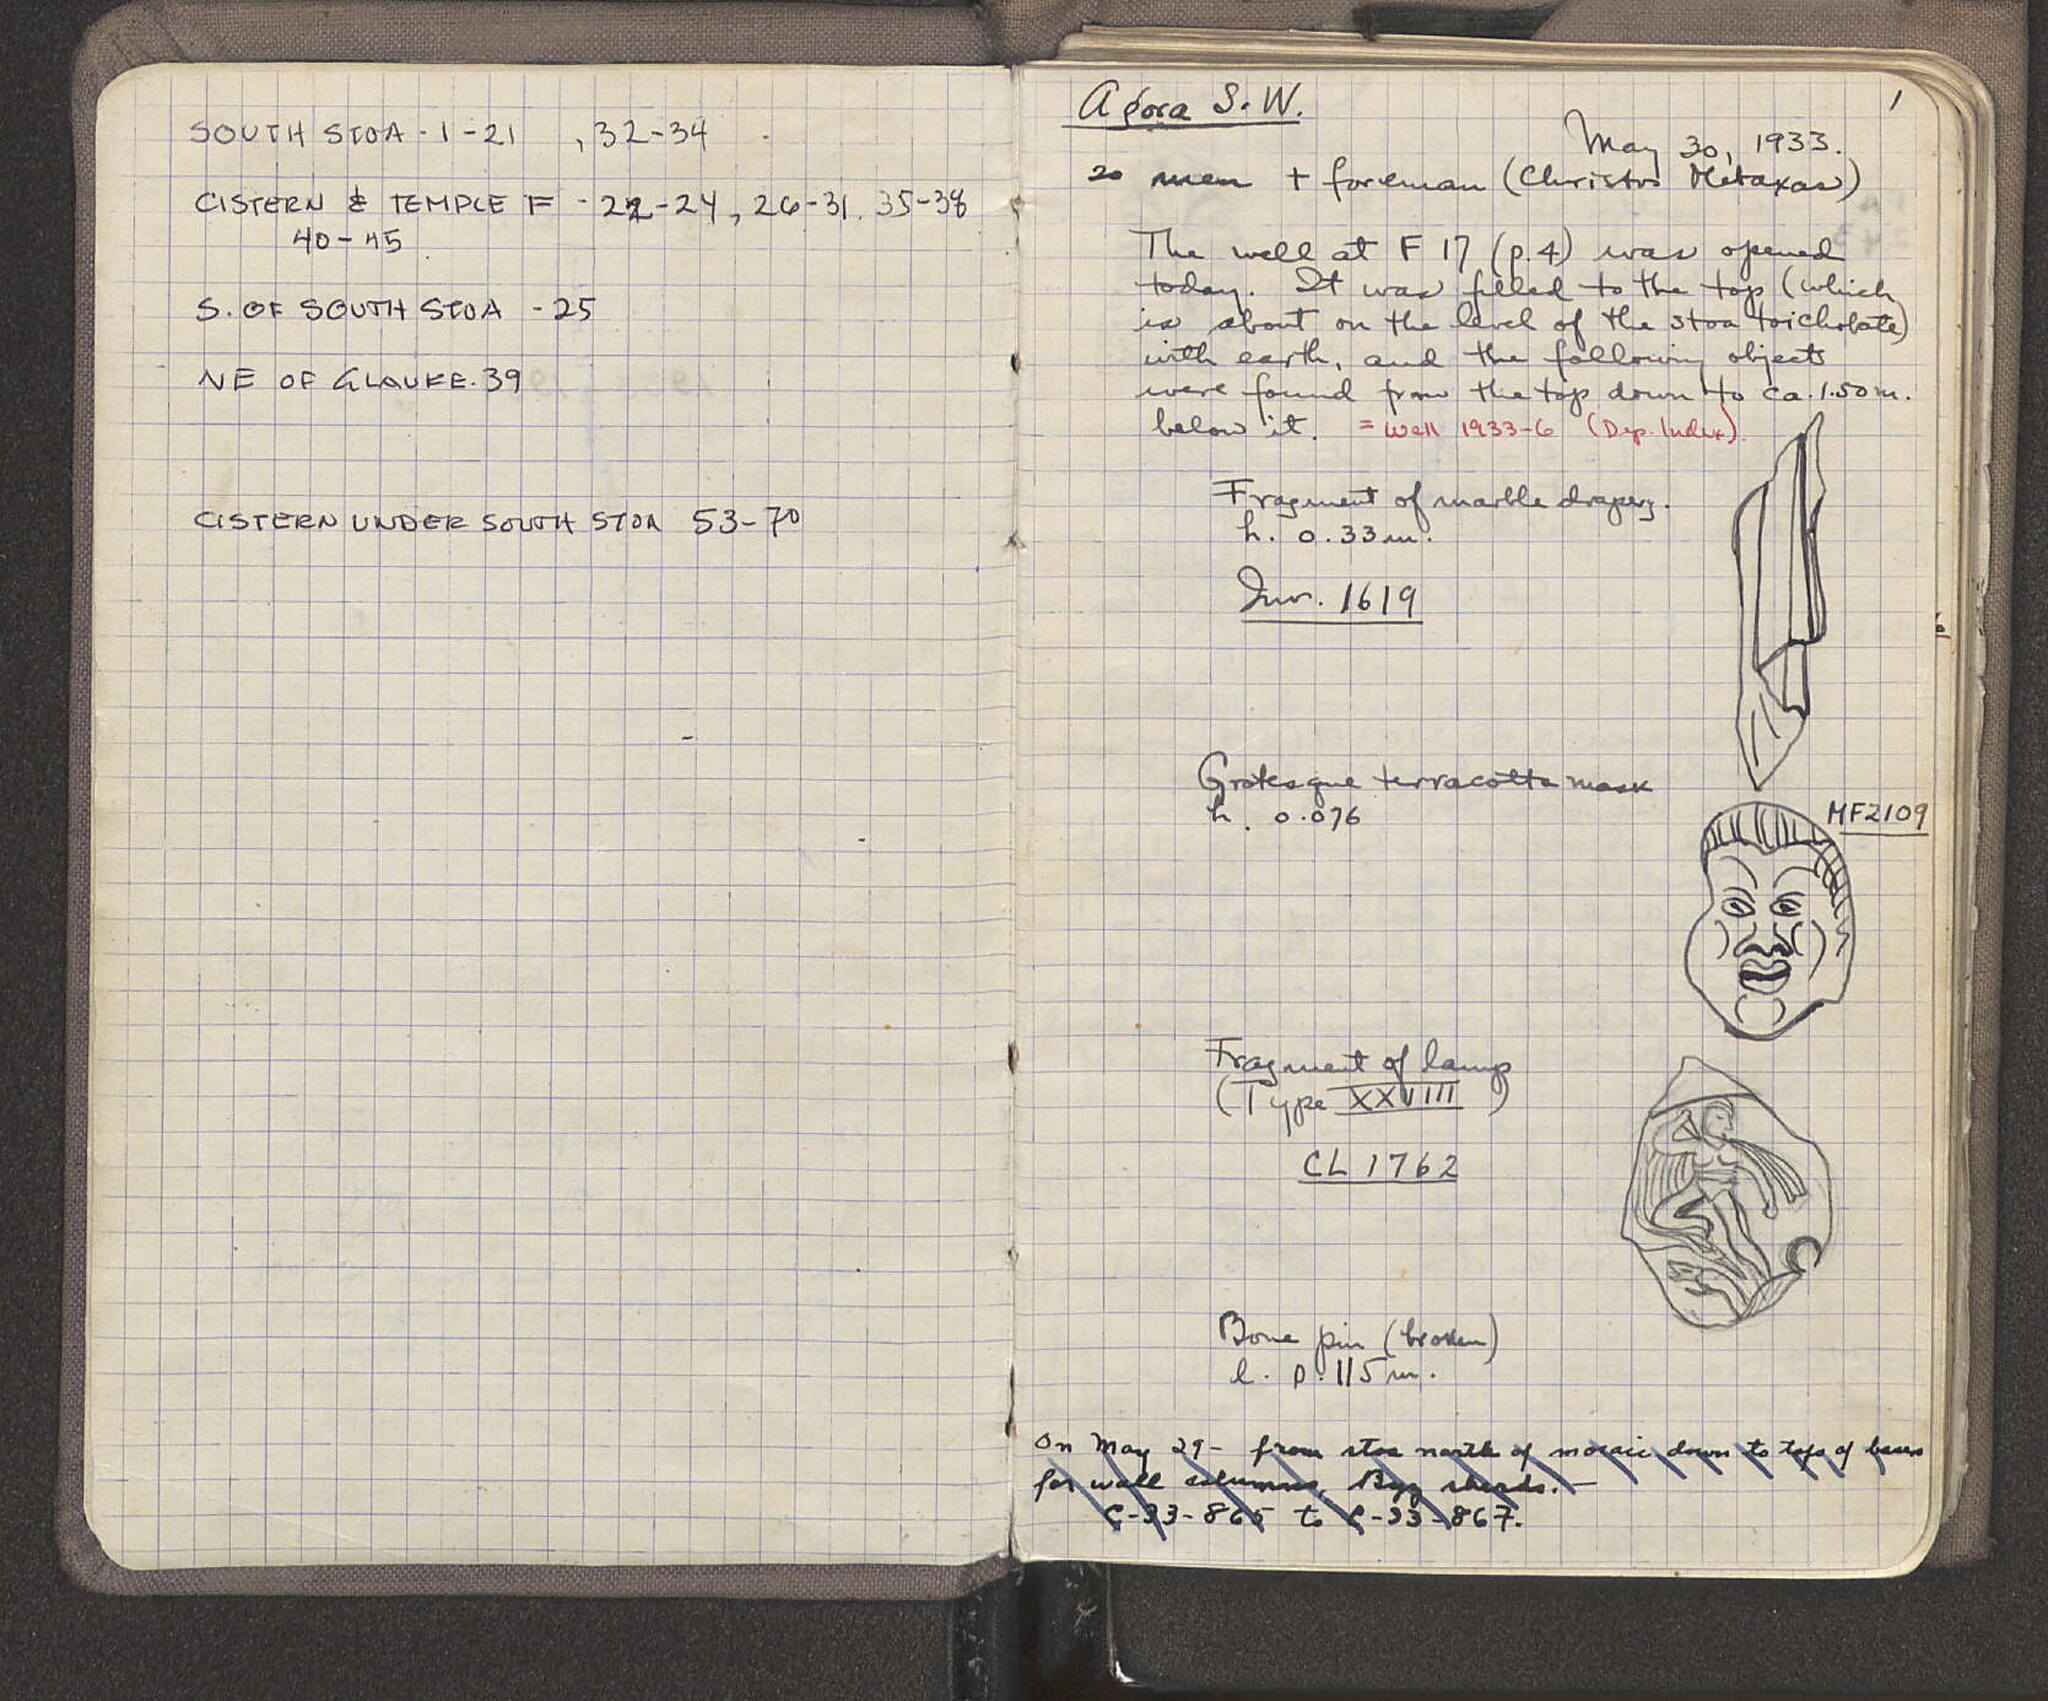 SOUTH STOA - 1-21 , 32-34
CISTERN & TEMPLE F - 22-24, 26-31. 35-38
40-45
S. OF SOUTH STOA - 25
NE OF GLAUKE. 39
CISTERN UNDER SOUTH STOA 53-70
1
Agora S.W.
May 30, 1933.
20 men + foreman (Christos Metaxas)
The well at F 17 (p.4) was opened
today. It was filled to the top (which
is about on the level of the stoa toichobate)
with earth, and the following objects
were found from the top down to ca. 1.50 m.
below it. = Well 1933-6 (Dep. Index).
Fragment of marble drapery.
h. 0.33 m.
Inv. 1619
Grotesque terracotta mask
h. 0.076
MF2109
Fragment of lamp
(Type XXVIII)
CL 1762
Bone pin (broken)
l. 0.115 m.
On May 29 - from stoa north of mosaic down to tops of bases
for wall columns, Byz sherds. -
C-33-865 to C-33-867.